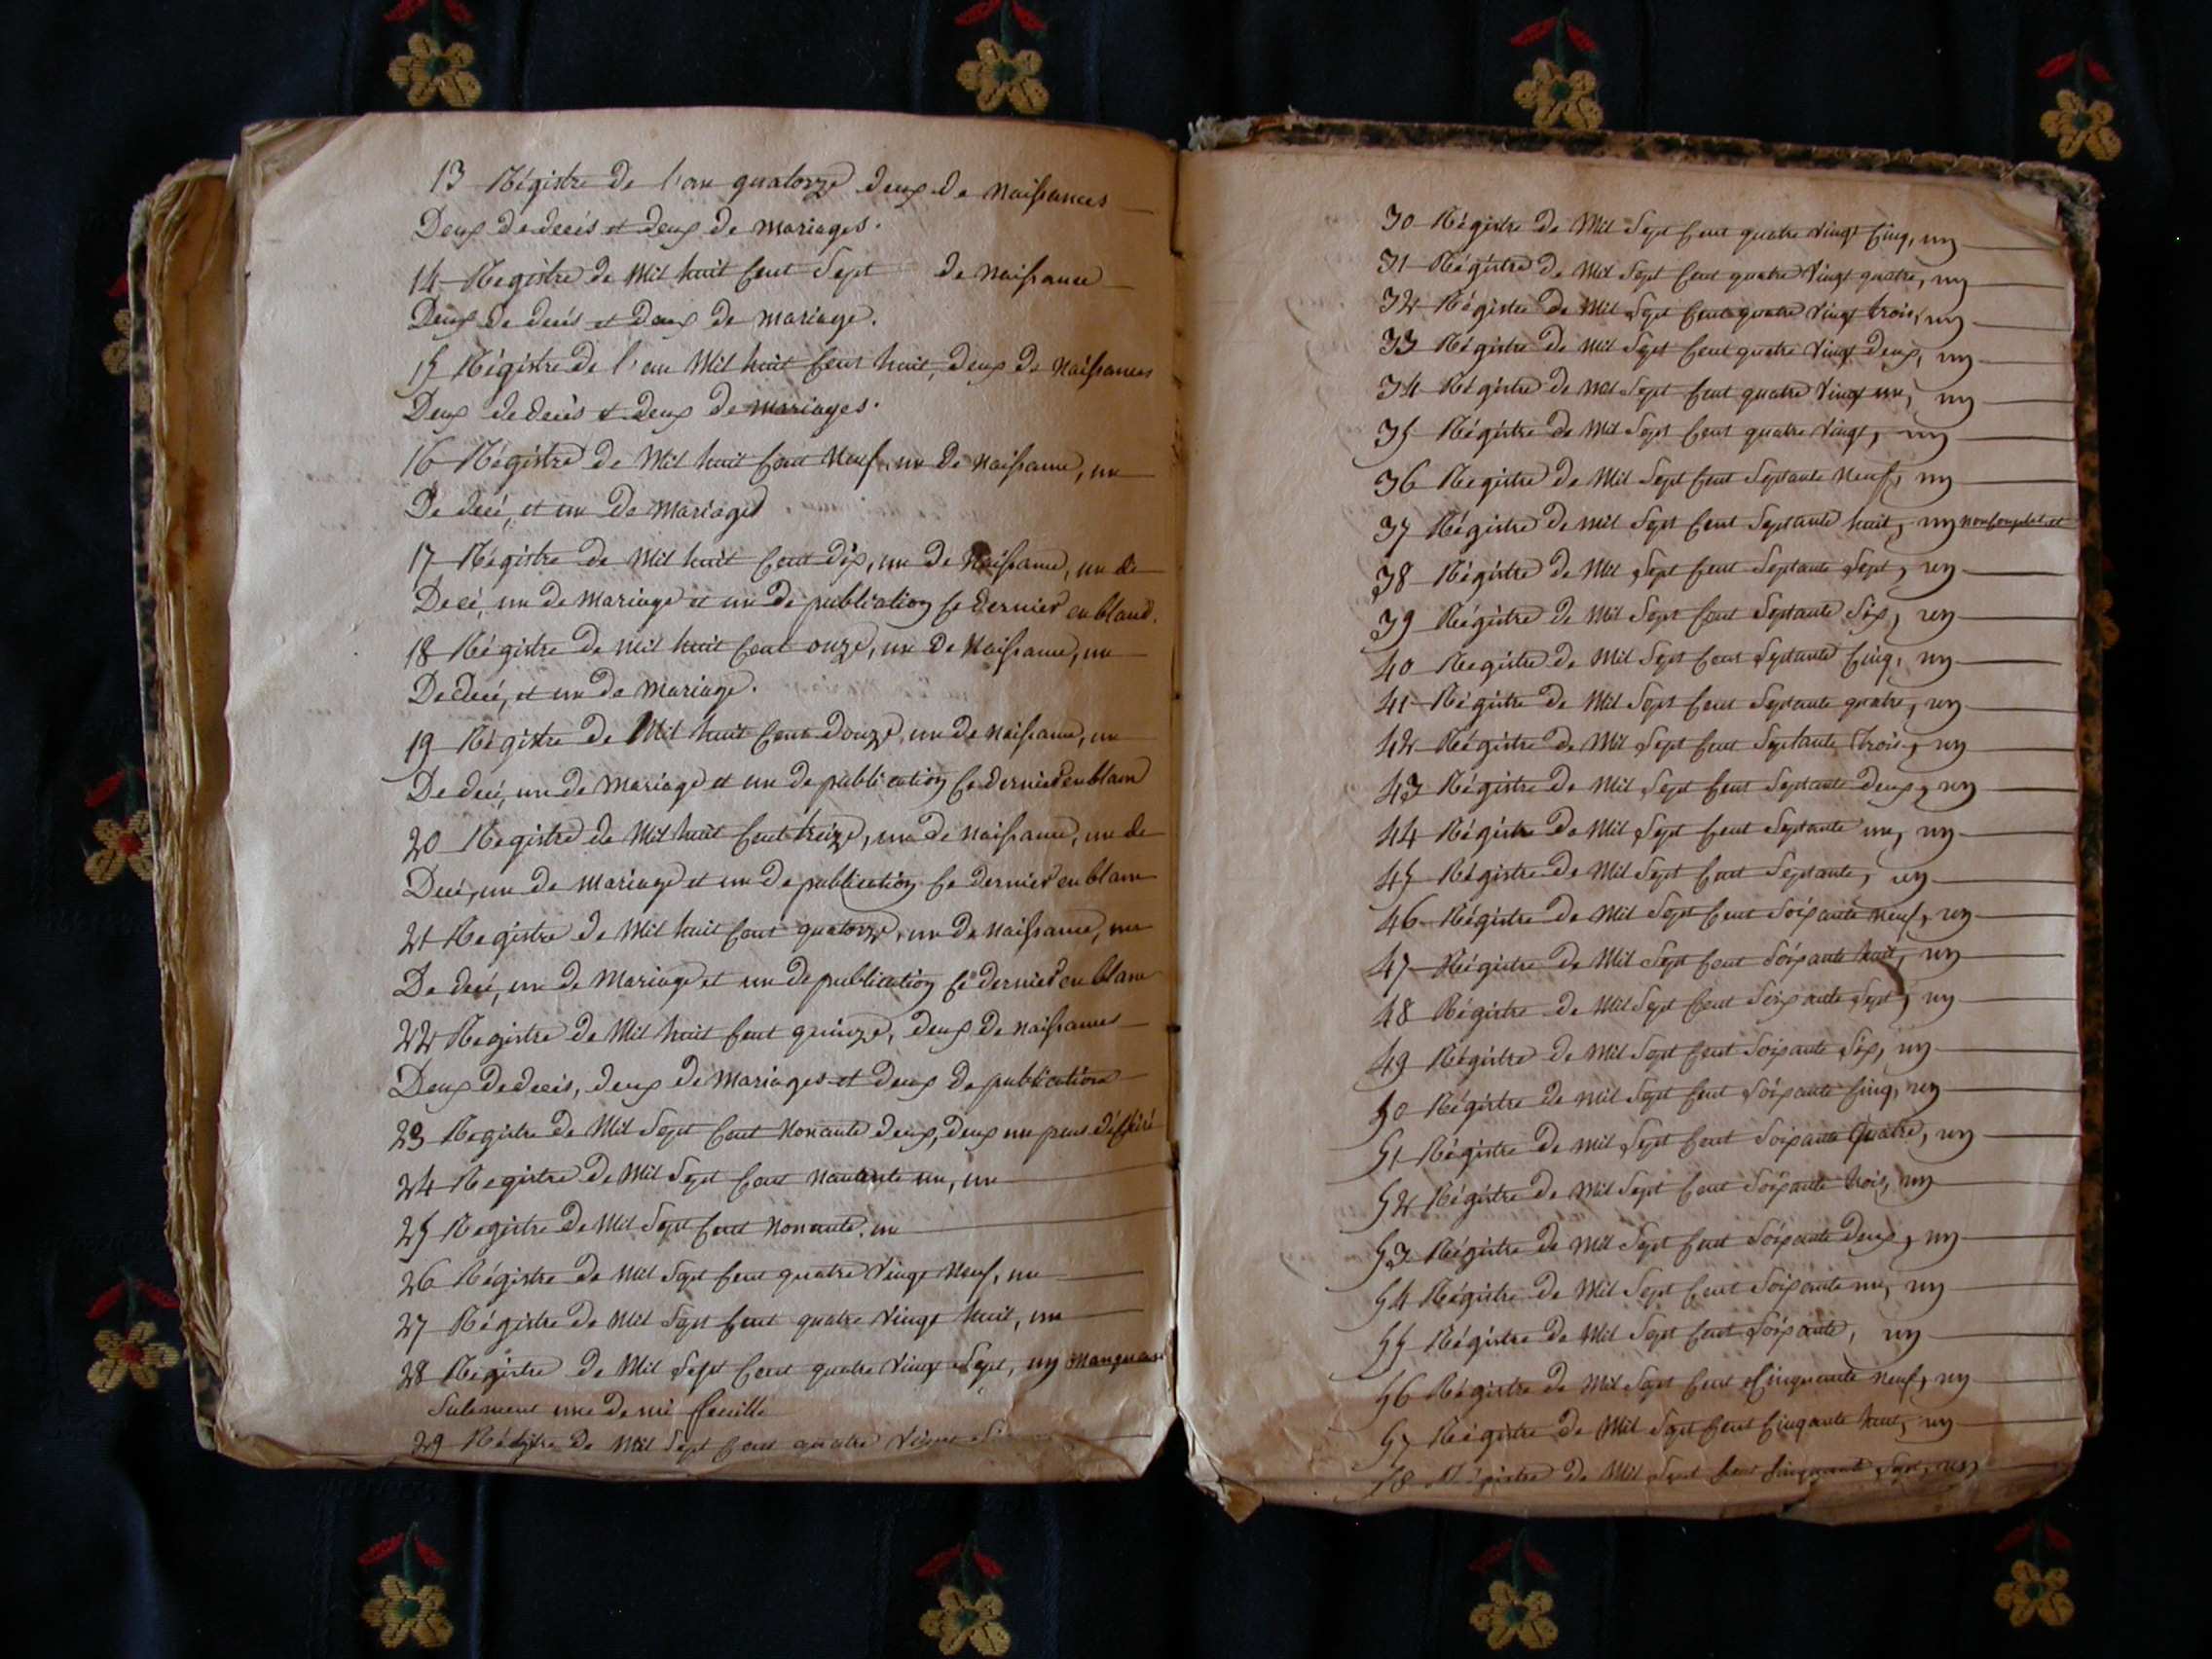 13 Régistre de l'an quatorze deux de Naissances
Deux de decés et deux de mariages.
14 Régistre de Mil huit Cent Sept de Naissance
Deux de decés et deux de mariage.
15 Régistre de l'an Mil huit Cent huit, deux de Naissances
Deux de decés et deux de mariages.
16 Régistre de Mil huit Cent Neuf, un de Naissance, un
De decé, et un de Mariage
17 Régistre de Mil huit Cent dix, un de Naissance, un de
Decé, un de Mariage et un de publication Ce dernier en blanc.
18 Régistre de Mil huit Cent onze, un de Naissance, un
De decé, et un de Mariage.
19 Régistre de Mil huit Cent douze, un de Naissance, un
De decé, un de Mariage et un de publication Ce dernier en blanc
20 Registre de Mil huit Cent treize, un de Naissance, un de
Decé, un de Mariage et un de publication Ce dernier en blanc
21 Registre de Mil huit Cent quatorze, un de Naissance, un
De decé, un de Mariage et un de publication Ce dernier en blanc
22 Registre de Mil huit Cent quinze, deux de Naissances
Deux de decés, deux de Mariages et deux de publication
23 Registre de Mil Sept Cent Nonante deux, deux un peu
24 Registre de Mil Sept Cent Nonante un, un
25 Registre de Mil Sept Cent Nonante, un
26 Régistre de Mil Sept Cent quatre Vingt Neuf, un
27 Régistre de Mil Sept Cent quatre Vingt huit, un
28 Régistre de Mil Sept Cent quatre Vingt Sept, un Manquant
Sulement une demi feuille
29 Régistre de Mil Sept Cent quatre Vingt
30 Régistre de Mil Sept Cent quatre Vingt Cinq, un
31 Régistre de Mil Sept Cent quatre Vingt quatre, un
32 Régistre de Mil Sept Cent quatre Vingt trois, un
33 Régistre de Mil Sept Cent quatre Vingt deux, un
34 Régistre de Mil Sept Cent quatre Vingt un, un
35 Régistre de Mil Sept Cent quatre Vingt, un
36 Registre de Mil Sept Cent Septante Neuf, un
37 Régistre de Mil Sept Cent Septante huit, un non complet et
38 Régistre de Mil Sept Cent Septante Sept, un
39 Régistre de Mil Sept Cent Septante Six, un
40 Registre de Mil Sept Cent Septante Cinq, un
41 Régistre de Mil Sept Cent Septante quatre, un
42 Régistre de Mil Sept Cent Septante Trois, un
43 Régistre de Mil Sept Cent Septante deux, un
44 Régistre de Mil Sept Cent Septante un, un
45 Régistre de Mil Sept Cent Septante, un
46 Régistre de Mil Sept Cent Soixante neuf, un
47 Régistre de Mil Sept Cent Soixante huit, un
48 Régistre de Mil Sept Cent Soixante Sept, un
49 Régistre de Mil Sept Cent Soixante Six, un
50 Régistre de Mil Sept Cent Soixante Cinq, un
51 Régistre de Mil Sept Cent Soixante Quatre, un
52 Régistre de Mil Sept Cent Soixante trois, un
53 Régistre de Mil Sept Cent Soixante Deux, un
54 Régistre de Mil Sept Cent Soixante un, un
55 Régistre de Mil Sept Cent Soixante, un
56 Régistre de Mil Sept Cent Cinquante neuf, un
57 Régistre de Mil Sept Cent Cinqante huit, un
58 Régistre de Mil Sept Cent Cinquante Sept, un